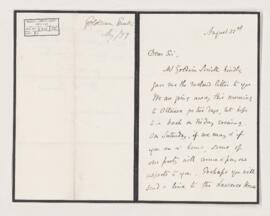 Goldwin Smith
Aug/79
August 22nd
Dear Sir,
Mr Goldwin Smith kindly
gave me the enclosed letter to you
We are going away this morning
to Ottawa for two days, but hope
to be back on Friday evening.
On Saturday, if we may, & if
you are at home, some of
our party will come & pay our
respects to you. Perhaps you will
send a line to the